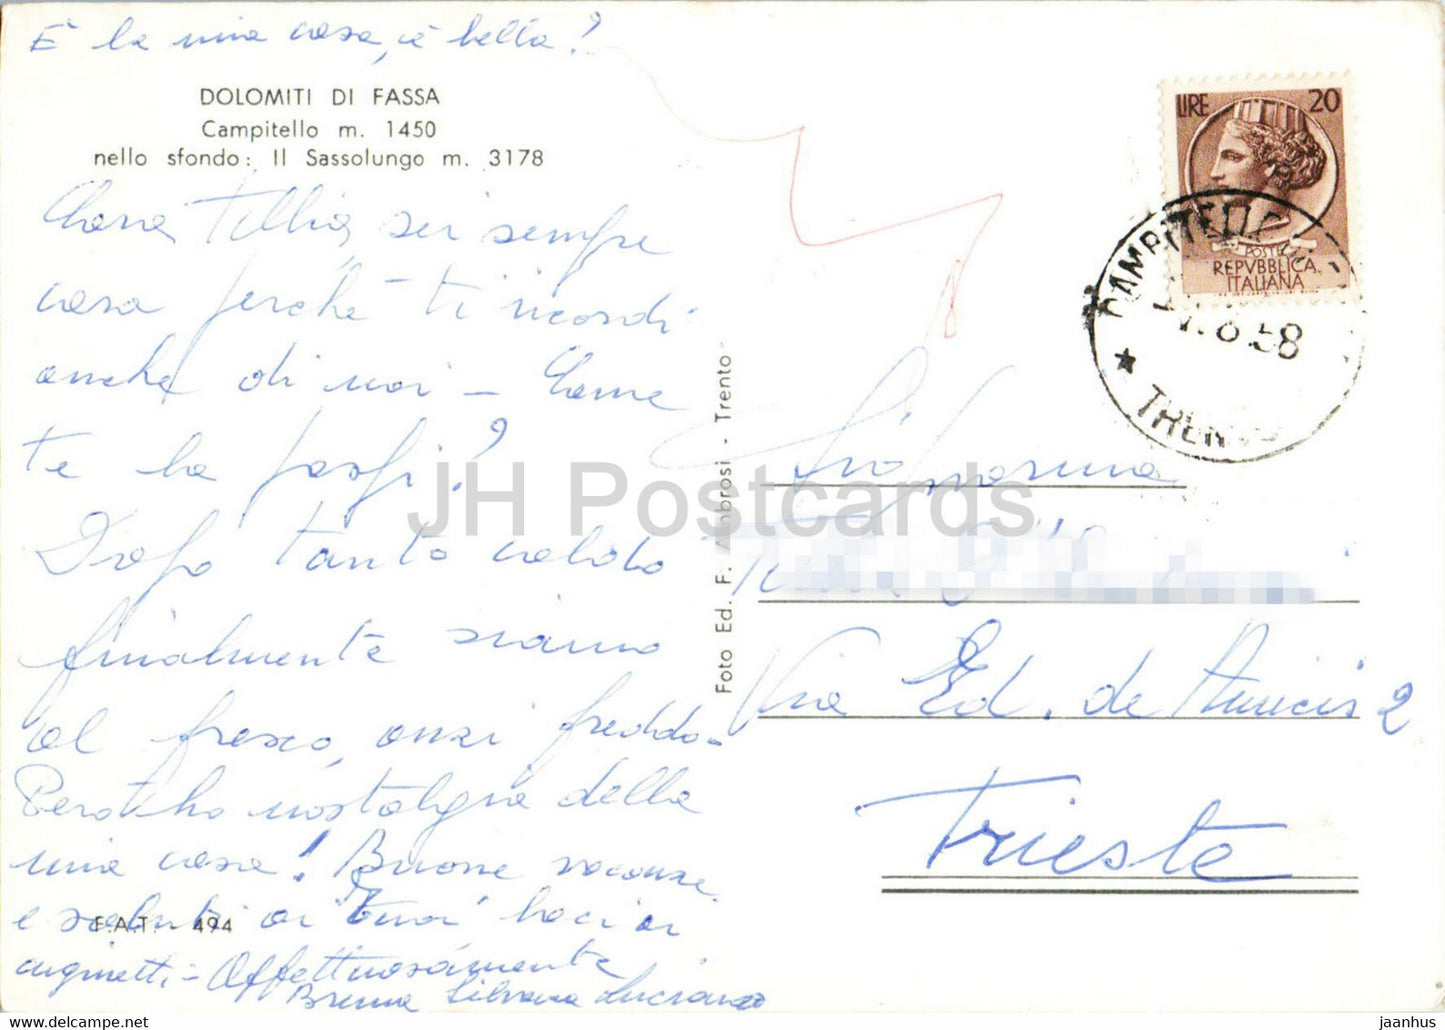 È la mia casa, è bella?
DOLOMITI DI FASSA
Campitello m. 1450
nello sfondo: Il Sassolungo m. 3178
Chara Tillia, sei sempre
casa perchè ti ricordi
anche di noi - Come
te la passi?
Dopo tanto caldo
finalmente siamo
al fresco, anzi freddo -
Però ho nostalgia della
mia casa! Buone vacanze
e saluti ai tuoi baci ai
cuginetti - Affettuosamente
Bruna Silvana Luciano
F.A.T. - 494
Foto Ed. F. Ambrosi - Trento
LIRE 20
POSTE
REPVBBLICA
ITALIANA
CAMPITELLO
8.58
★ TRENTO
Signorina
Via Ed. de Amicis 2
Trieste
JH Postcards
jaanhus — www.delcampe.net